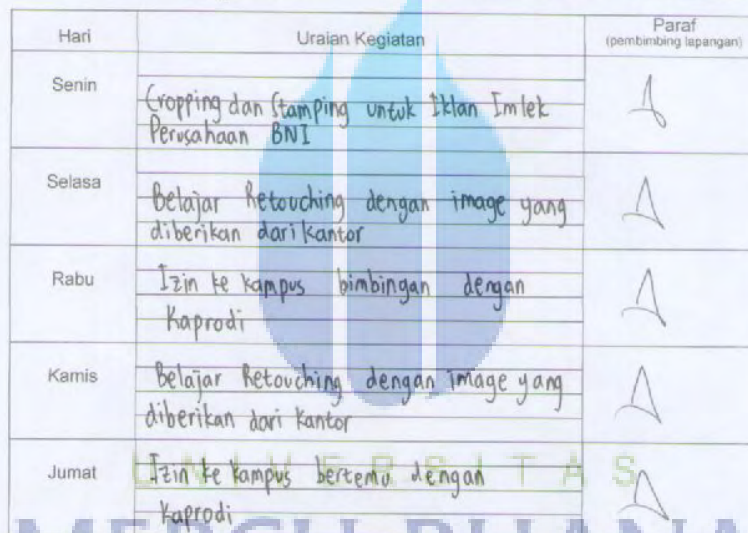 Hari Uraian Kegiatan Paraf
(pembimbing lapangan)
Senin
Cropping dan Stamping untuk Iklan Imlek
Perusahaan BNI
Selasa
Belajar Retouching dengan image yang
diberikan dari kantor
Rabu
Izin ke kampus bimbingan dengan
Kaprodi
Kamis
Belajar Retouching dengan image yang
diberikan dari kantor
Jumat
Izin ke kampus bertemu dengan
Kaprodi
UNIVERSITAS
MERCU BUANA